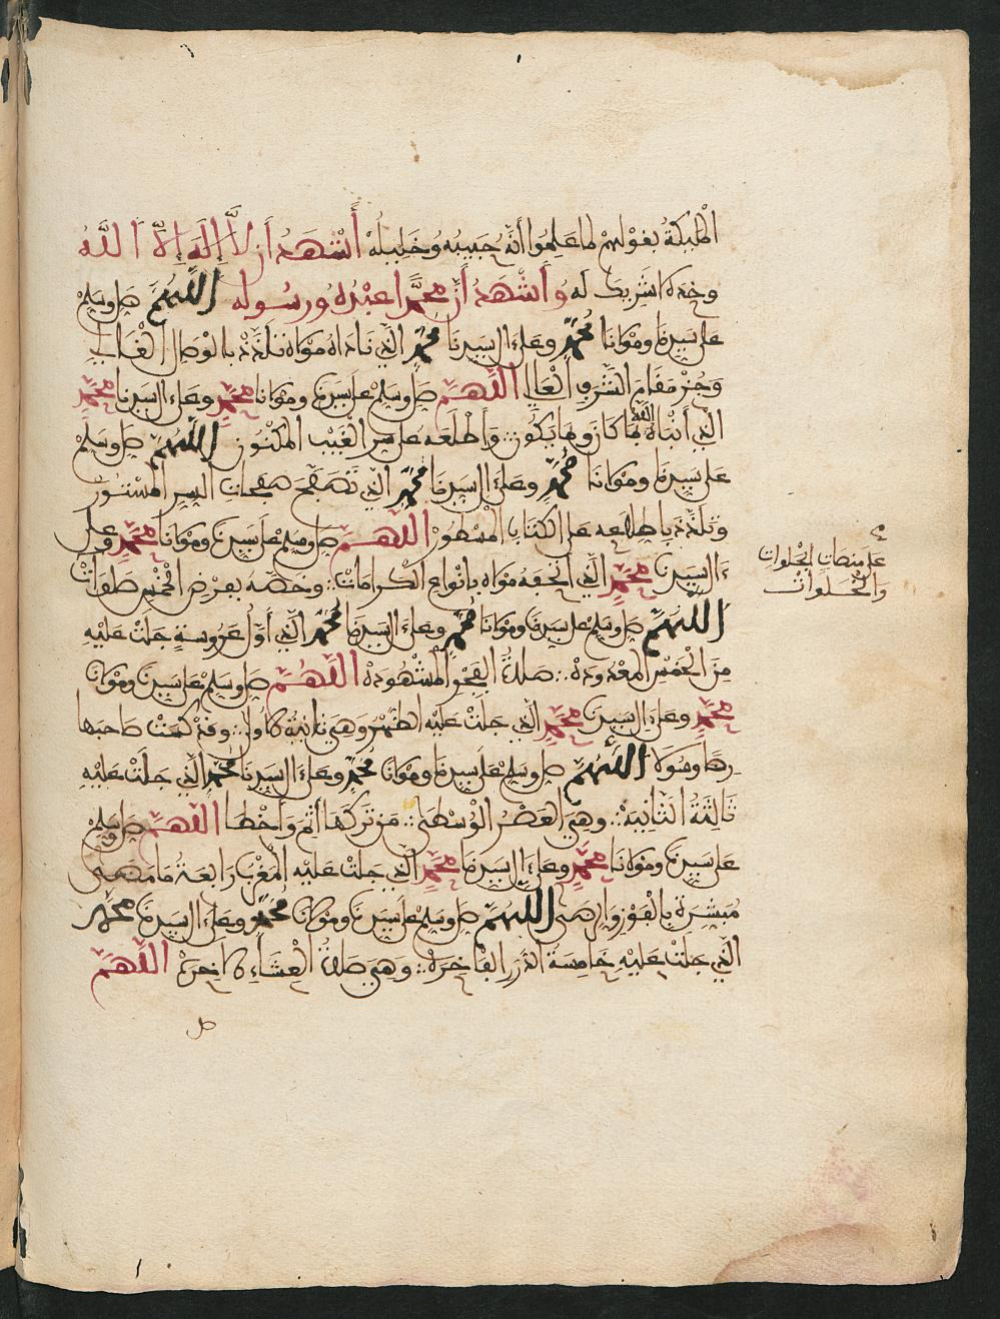 الملئكة بقولهم لما علموا أنه حبيبه وخليله أشهد أن لا إله إلا الله
وحده لا شريك له وأشهد أن محمدا عبده ورسوله اللهم صل وسلم
على سيدنا ومولانا محمد وعلى ءال سيدنا محمد الذي ناداه مولاه تلذذ بالوصال
وحز مقام الشرف العالي اللهم صل وسلم على سيدنا ومولانا محمد وعلى ءال سيدنا محمد
الذي أنبأه الله بما كان وما يكون وأطلعه على سر الغيب المكنون اللهم صل وسلم
على سيدنا ومولانا محمد وعلى ءال سيدنا محمد الذي تصفح صفحات السر المستور
وتلذذ باطلاعه على الكتاب المسطور اللهم صل وسلم على سيدنا ومولانا محمد وعلى
ءال سيدنا محمد الذي اتحفه مولاه بانواع الكرامات وخصه بفرض الخمس صلوات
على منصات الجلوات
والخلوات
اللهم صل وسلم على سيدنا ومولانا محمد وعلى ءال سيدنا محمد الذي أول عروسة جلت عليه
من الخمس المعدوده صلاة الفجر المشهوده اللهم صل وسلم على سيدنا ومولانا
محمد وعلى ءال سيدنا محمد الذي جلت عليه الظهر وهي ثانية الاولى وقد صاحبها
وسولا اللهم صل وسلم على سيدنا ومولانا محمد وعلى ءال سيدنا محمد الذي جلت عليه
ثالثة الثانية وهي العصر الوسطى من تركها أثم وأخطا اللهم صل وسلم
على سيدنا ومولانا محمد وعلى ءال سيدنا محمد الذي جلت عليه المغرب رابعة ما مضى
مبشرة بالفوز والرضى اللهم صل وسلم على سيدنا ومولانا محمد وعلى ءال سيدنا محمد
الذي جلت عليه خامسة الدرر الفاخرة وهي صلاة العشاء الاخرة اللهم
صل